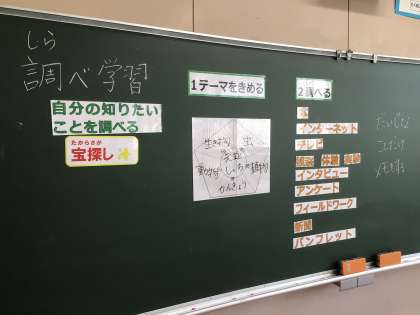 しら
調べ学習
自分の知りたい
ことを調べる
たからさが
宝探し
1テーマをきめる
生き物
虫
動物
植物
かんきょう
2調べる
本
インターネット
テレビ
インタビュー
アンケート
フィールドワーク
新聞
パンフレット
だいじな
ことだけ
メモする